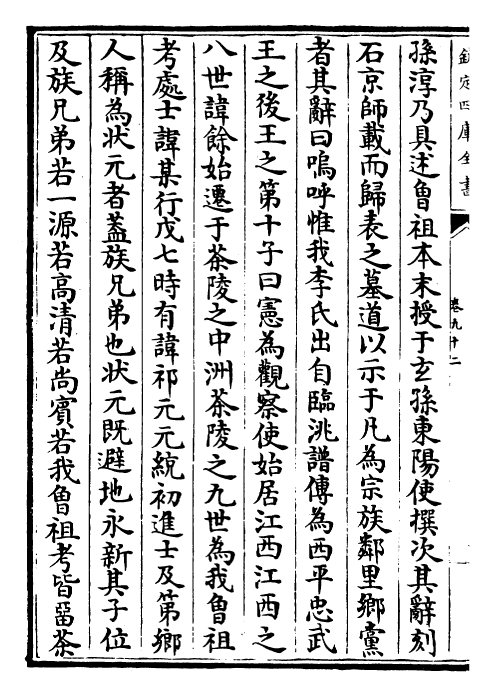 欽定四庫全書
卷九十二
孫淳乃具述曾祖本末授于玄孫東陽使撰次其辭刻
石京師載而歸表之墓道以示于凡為宗族鄰里鄉黨
者其辭曰嗚呼惟我李氏出自臨洮譜傳為西平忠武
王之後王之第十子曰憲為觀察使始居江西江西之
八世諱餘始遷于茶陵之中洲茶陵之九世為我曾祖
考處士諱某行戊七時有諱祁元元統初進士及第鄉
人稱為状元者蓋族兄弟也状元既避地永新其子位
及族兄弟若一源若高清若尚賓若我曾祖考皆畱茶